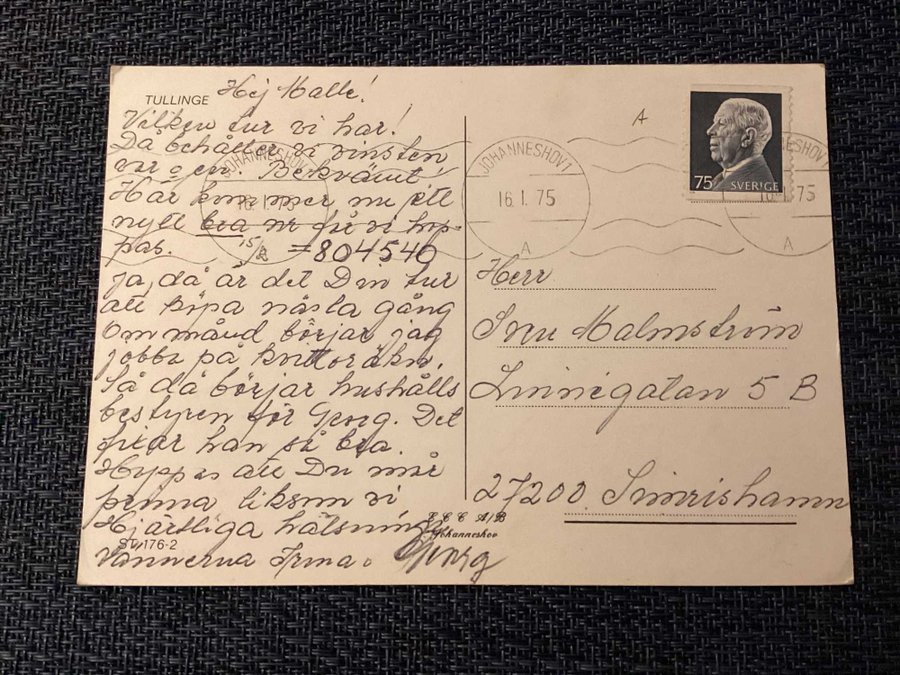 TULLINGE
Hej Malle!
Vilken tur vi har!
Då behåller vi vinsten
var o en. Bekvämt!
Här kommer nu ett
nytt bra nr får vi hop-
pas. = 804540
15/1
Ja, då är det Din tur
att köpa nästa gång
Om månd börjar jag
jobba på
Så då börjar hushålls
bestyren för Georg. Det
fixar han så bra.
Hoppas att Du mår
prima liksom vi
Hjärtliga hälsningar
ST, 176-2
Vännerna Irma o Georg
L C C A/B
Johanneshov
JOHANNESHOV 1
16.1.75
A
JOHANNESHOV 1
16.1.75
A
JOHANNESHOV 1
16.1.75
A
A
75 SVERIGE
Herr
Sven Malmström
Linnégatan 5 B
27200 Simrishamn